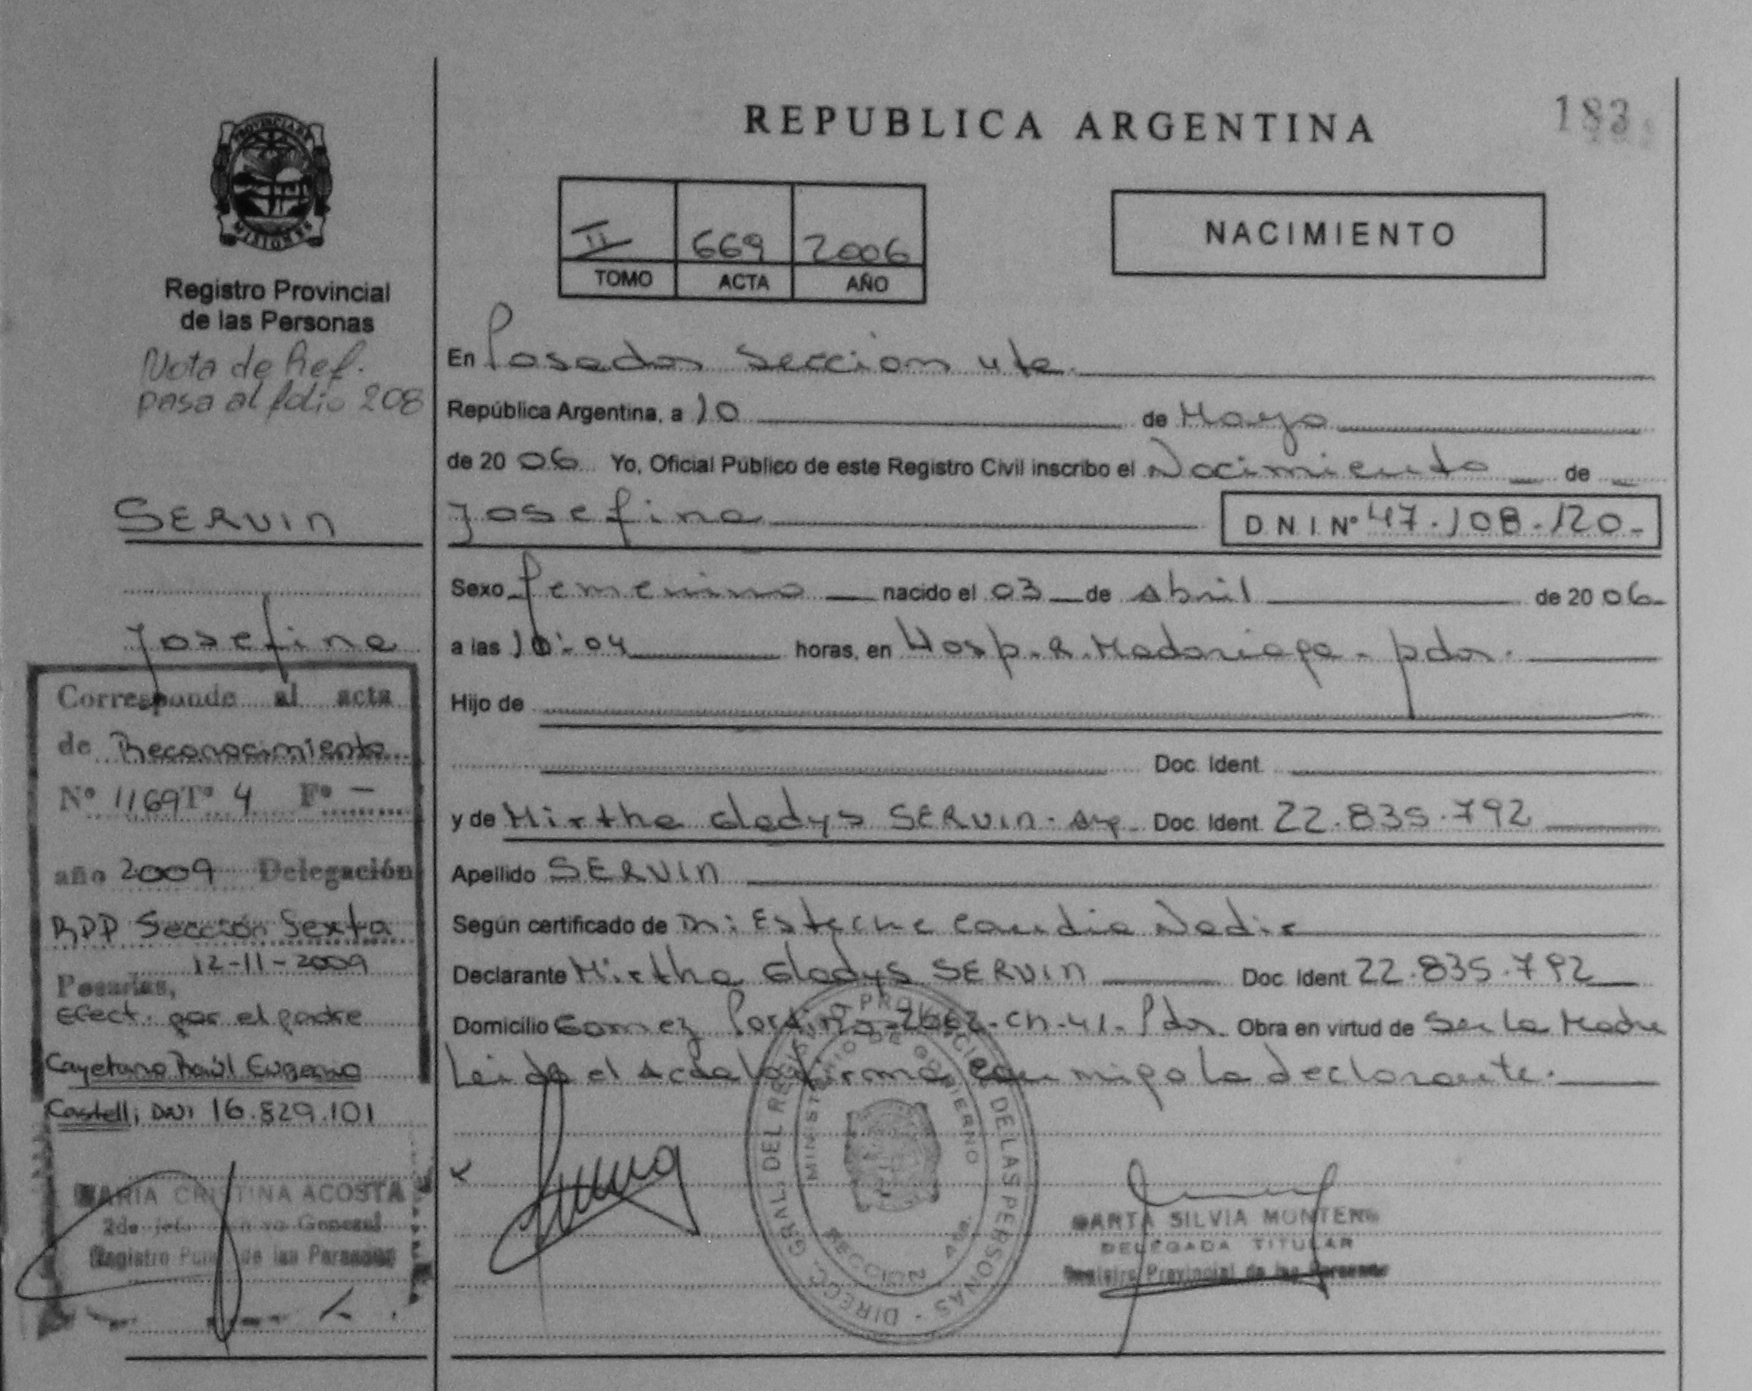 PROVINCIA DE
MISIONES
Registro Provincial
de las Personas
Nota de Ref.
pasa al folio 208
SERVIN
Josefina
Corresponde al acta
de Reconocimiento
Nº 1169 Tº 4 Fº -
año 2009 Delegación
RPP Sección Sexta
12-11-2009
Posadas,
Efect. por el padre
Cayetano Raúl Eugenio
Castelli DNI 16.829.101
MARIA CRISTINA ACOSTA
2do jefe General
Registro de las Personas
REPUBLICA ARGENTINA
183
II 669 2006
TOMO ACTA AÑO
NACIMIENTO
En Posadas Seccion 4ta.
República Argentina, a 10 de Mayo
de 20 06 Yo, Oficial Público de este Registro Civil inscribo el Nacimiento de
Josefina D.N.I. Nº 47.108.120-
Sexo femenino nacido el 03 de Abril de 20 06
a las 10:04 horas, en Hosp. R. Madariaga - pdas.
Hijo de
Doc. Ident.
y de Mirtha Gladys SERVIN - Arg. Doc. Ident. 22.835.792
Apellido SERVIN
Según certificado de Esteche Claudia Nadia
Declarante Mirtha Gladys SERVIN Doc. Ident. 22.835.792
Domicilio Gomez Portinho - 2662 - CH - 41 - Pdas Obra en virtud de Ser la Madre
Leida el Acta la firma conmigo la declarante.
DIRECC. GRAL. DEL REGISTRO PROVINCIAL DE LAS PERSONAS
MINISTERIO DE GOBIERNO
SECCION 4ta.
MARTA SILVIA MONTERO
DELEGADA TITULAR
Registro Provincial de las Personas